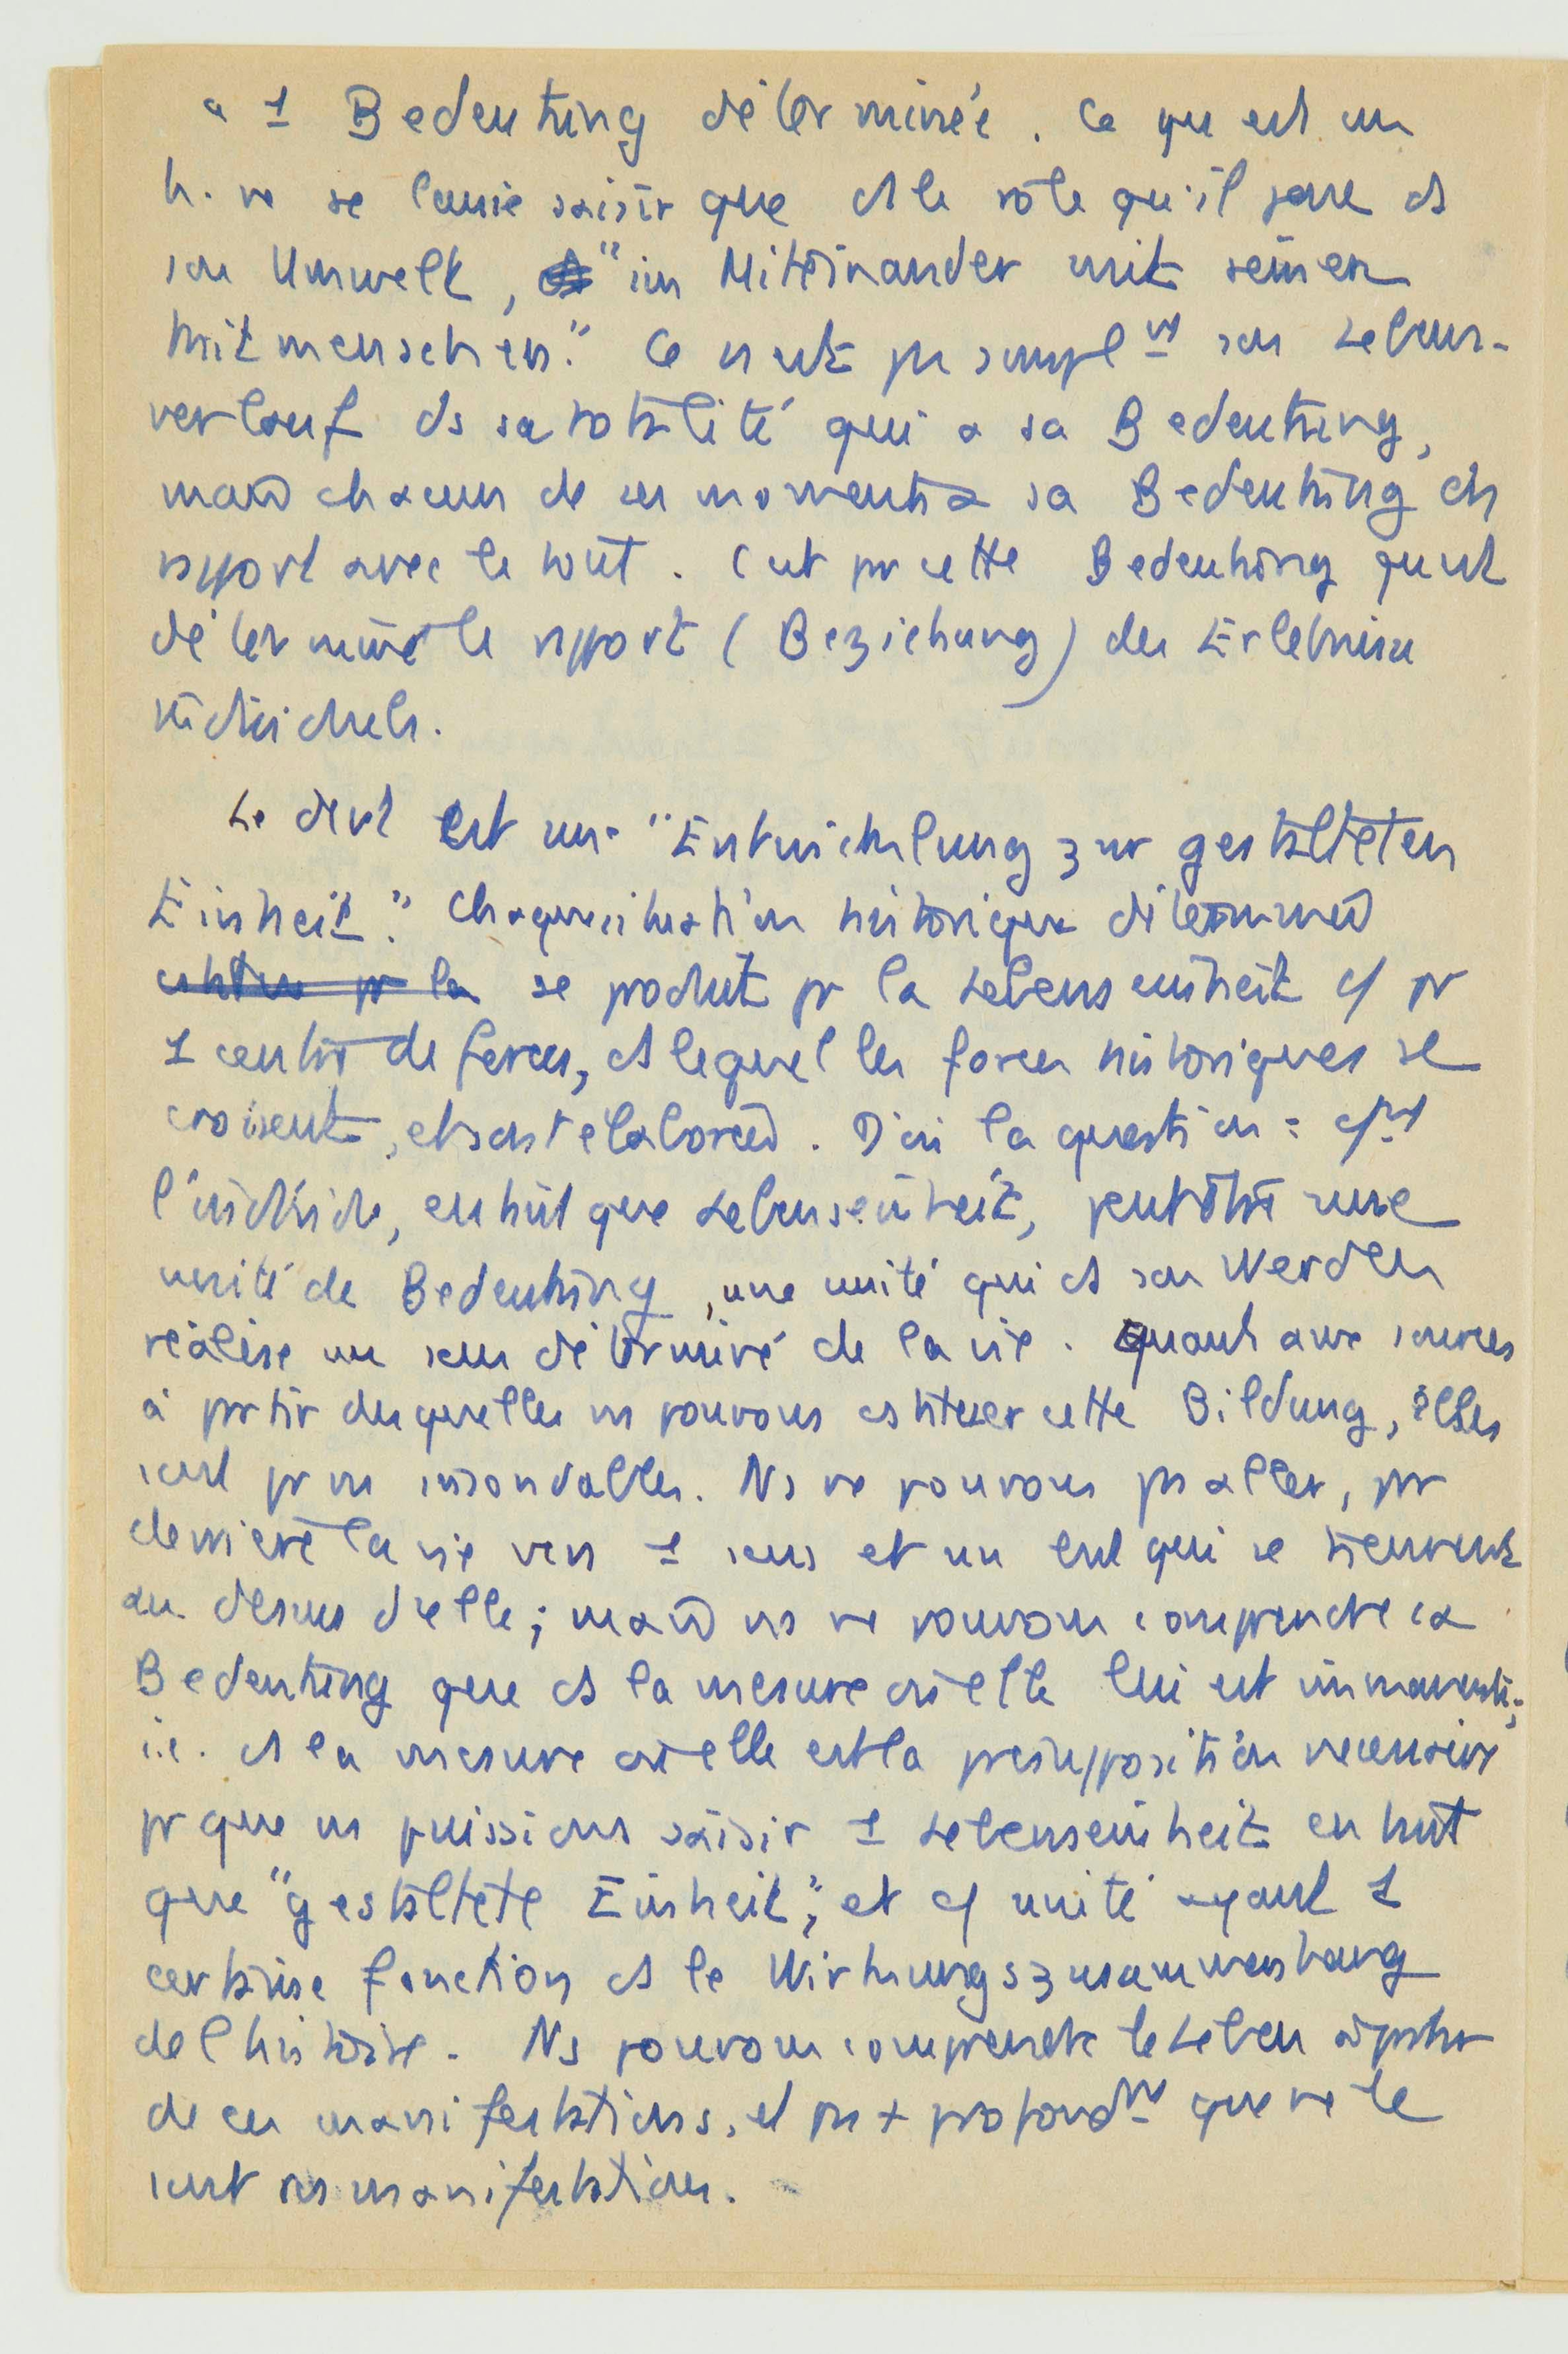 a 1 Bedeutung déterminée. Ce qu'est un
h. ne se laisse saisir que ds le rôle qu'il joue ds
son Umwelt, "im Miteinander mit seinen
Mitmenschen." Ce n'est pas simplt son Lebens-
verlauf ds sa totalité qui a sa Bedeutung,
mais chacun de ses moments a sa Bedeutung ds
rapport avec le tout. C'est pr cette Bedeutung qu'est
déterminé le rapport (Beziehung) des Erlebnisse
individuels.
est une "Entwicklung zur gestalteten
Einheit." Chaque situation historique déterminée
se produit pr la Lebenseinheit c/ pr
1 centre de forces, ds lequel les forces historiques se
croisent, et sont élaborées. D'où la question : c/t
l'individu, en tant que Lebenseinheit, peut être une
unité de Bedeutung, une unité qui ds son Werden
réalise un sens déterminé de la vie. Quant aux sources
à partir desquelles ns pouvons cstituer cette Bildung, elles
sont pr ns insondables. Ns ne pouvons pas aller, pr
derrière la vie vers 1 sens et un but qui se tiennent
au dessus d'elle ; mais ns ne pouvons comprendre sa
Bedeutung que ds la mesure où elle lui est immanente ;
i.e. ds la mesure où elle est la présupposition nécessaire
pr que ns puissions saisir 1 Lebenseinheit en tant
que "gestaltete Einheit", et c/ unité ayant 1
certaine fonction ds le Wirkungszusammenhang
de l'histoire. Ns pouvons comprendre le Leben à partir
de ces manifestations, et pas + profondt que ne le
sont ces manifestations.